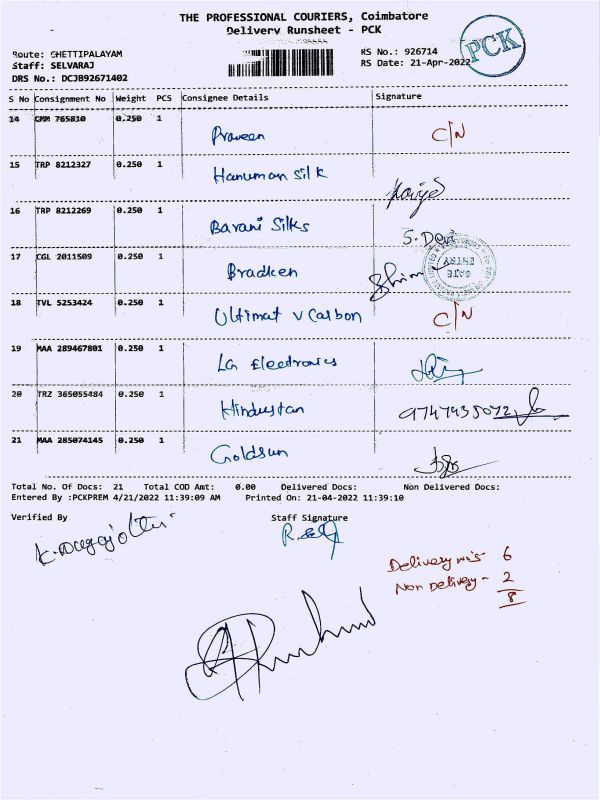 THE PROFESSIONAL COURIERS, Coimbatore
Delivery Runsheet - PCK
Route: CHETTIPALAYAM
Staff: SELVARAJ
DRS No.: DCJB92671402
RS No.: 926714
RS Date: 21-Apr-2022
PCK
S No Consignment No Weight PCS Consignee Details Signature
14 CMM 765810 0.250 1 Praveen C/N
15 TRP 8212327 0.250 1 Hanuman Silk
16 TRP 8212269 0.250 1 Barani Silks S. Devi
17 CGL 2011509 0.250 1 Bradken
GATE ENTRY
18 TVL 5253424 0.250 1 Ultimat v Carbon C/N
19 MAA 289467801 0.250 1 LG Electronics
20 TRZ 365055484 0.250 1 Hindustan 9747435072
21 MAA 285074145 0.250 1 Goldsun
Total No. Of Docs: 21 Total COD Amt: 0.00 Delivered Docs: Non Delivered Docs:
Entered By :PCKPREM 4/21/2022 11:39:09 AM Printed On: 21-04-2022 11:39:10
Verified By Staff Signature
Delivery - 6
Non Delivery - 2
8